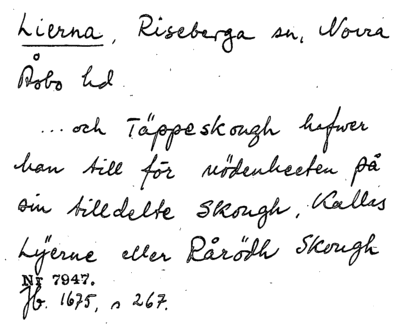 Lierna, Riseberga sn, Norra
Åsbo hd
... och Täppeskough hafwer
han till för nödenheeten på
sin tilldelte Skough, Kallas
Lÿerne eller Rårödh Skough
Nr 7947.
Jb. 1675, s 267.